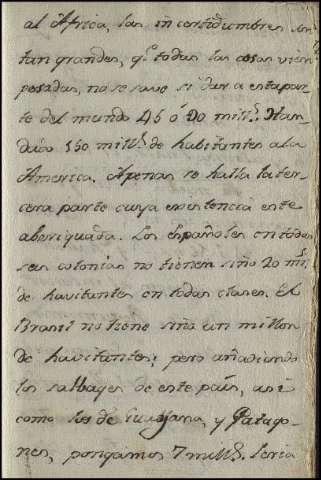 al Africa, las incertidumbres son
tan grandes, q.e todas las cosas vien
pesadas, no se save si dar a esta par-
te del mundo 45 ó 90 mill.s Han
dado 150 mill.s de habitantes a la
America. Apenas se halla la ter-
cera parte cuya existencia este
aberiguada. Los Españoles en todas
sus colonias no tienen siño 20 mill.s
de havitantes en todas clases. El
Brasil no tiene siño un millon
de havitantes; pero añadiendo
los salbages de este país, asi
como los de Guayana, y Patago-
nes, pongamos 7 mill.s Seria